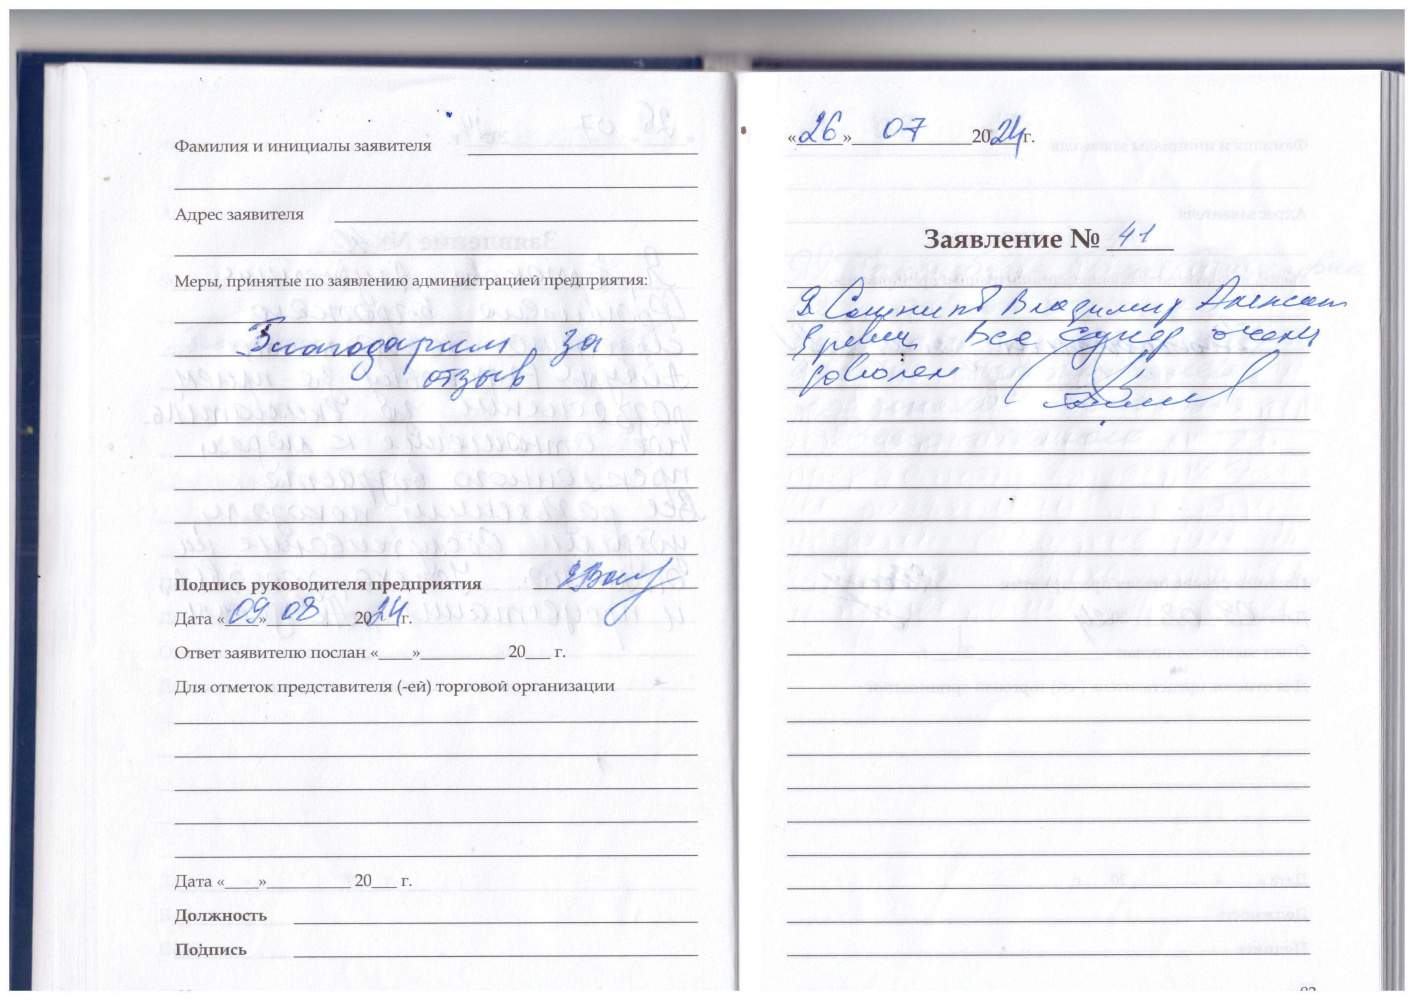 Фамилия и инициалы заявителя
Адрес заявителя
Меры, принятые по заявлению администрацией предприятия:
Благодарим за
отзыв
Подпись руководителя предприятия
Дата «09» 08 2024г.
Ответ заявителю послан «____»__________ 20___ г.
Для отметок представителя (-ей) торговой организации
Дата «____»__________ 20___ г.
Должность
Подпись
«26» 07 2024г.
Заявление № 41
Я Владимир Алексан
все очень
доволен